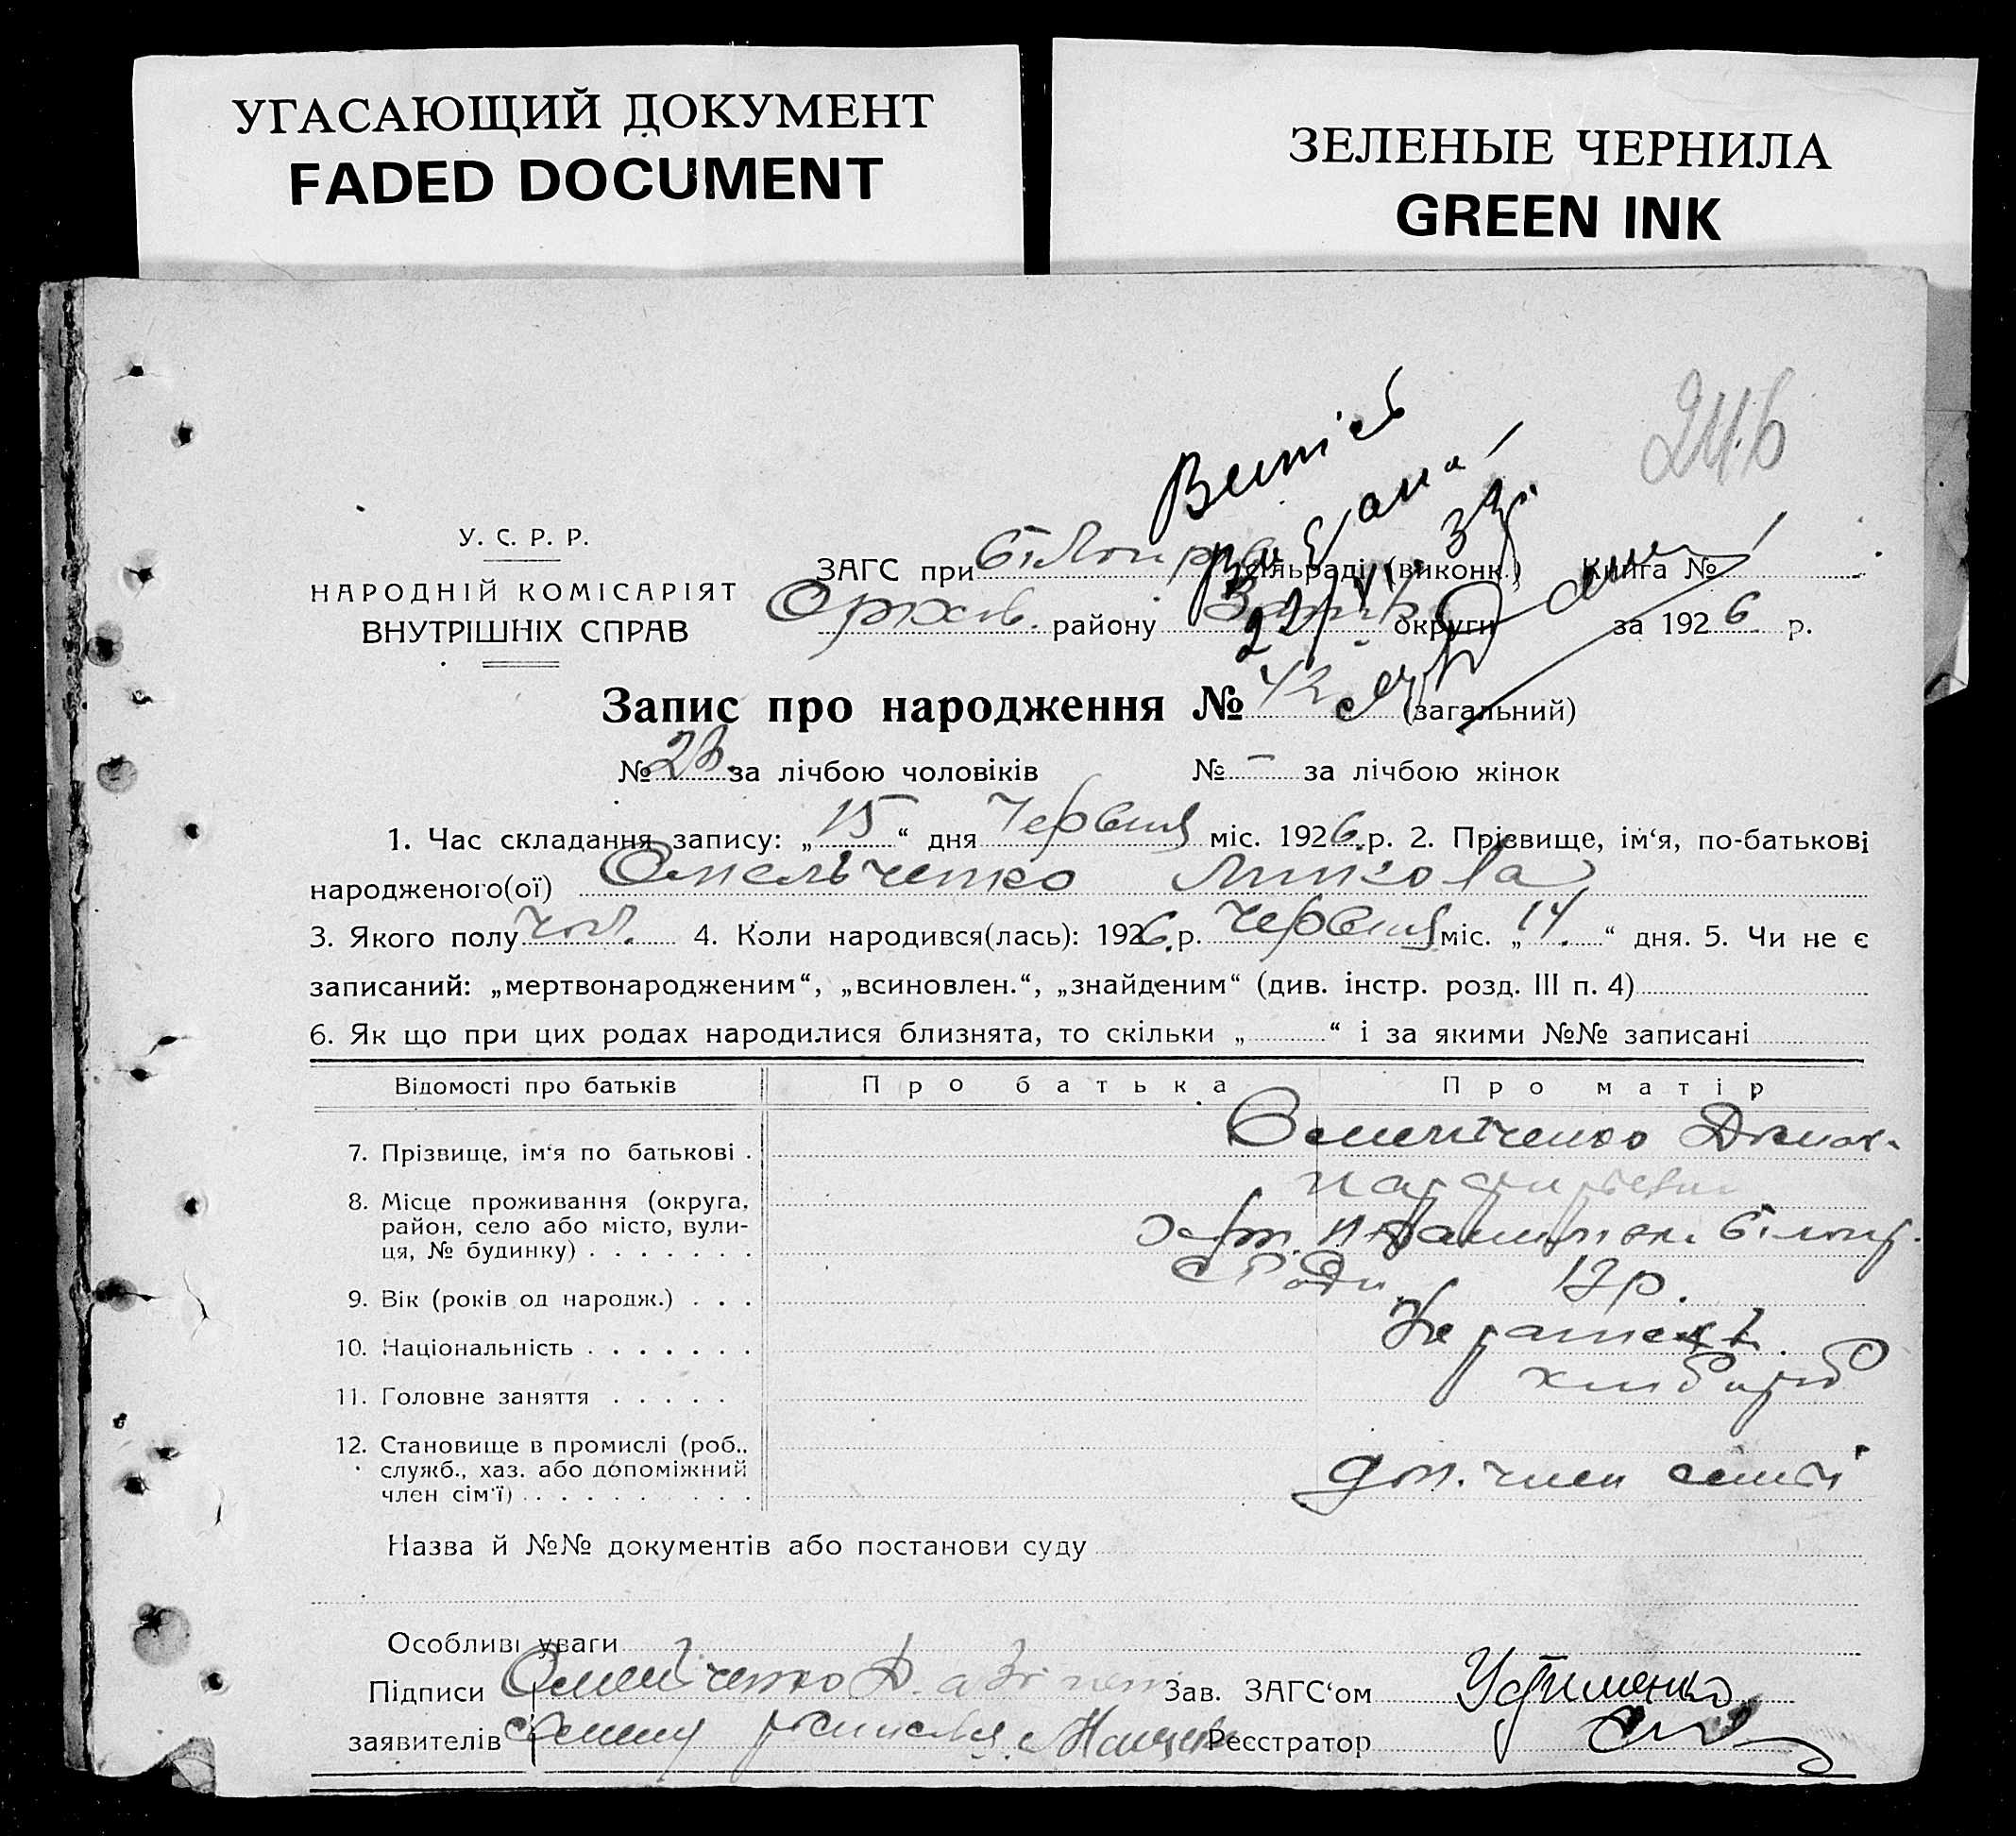 УГАСАЮЩИЙ ДОКУМЕНТ
FADED DOCUMENT
ЗЕЛЕНЫЕ ЧЕРНИЛА
GREEN INK
246
У. С. Р. Р.
НАРОДНІЙ КОМІСАРІЯТ
ВНУТРІШНІХ СПРАВ
ЗАГС при сільраді (виконк.) Книга №
Оріхів. району Запоріз округи за 1926 р.
Запис про народження № 42 (загальний)
№ 23 за лічбою чоловіків № – за лічбою жінок
1. Час складання запису: „15“ дня Червня міс. 1926 р. 2. Прізвище, ім‘я, по-батькові
народженого(ої) Омельченко Микола
3. Якого полу чол. 4. Коли народився(лась): 1926 р. Червня міс. „14“ дня. 5. Чи не є
записаний: „мертвонародженим“, „всиновлен.“, „знайденим“ (див. інстр. розд. III п. 4)
6. Як що при цих родах народилися близнята, то скільки „ “ і за якими №№ записані
Відомості про батьків Про батька Про матір
7. Прізвище, ім‘я по батькові . Омельченко
8. Місце проживання (округа,
район, село або місто, вули-
ця, № будинку) . . . . . . .
9. Вік (років од народж.) . . .
10. Національність . . . . . . .
11. Головне заняття . . . . .
12. Становище в промислі (роб.,
служб., хаз. або допоміжний
член сім‘ї) . . . . . . . . . доп. член сімті
Назва й №№ документів або постанови суду
Особливі уваги
Підписи Омельченко Д. Зав. ЗАГС‘ом Устименко
заявителів Реєстратор